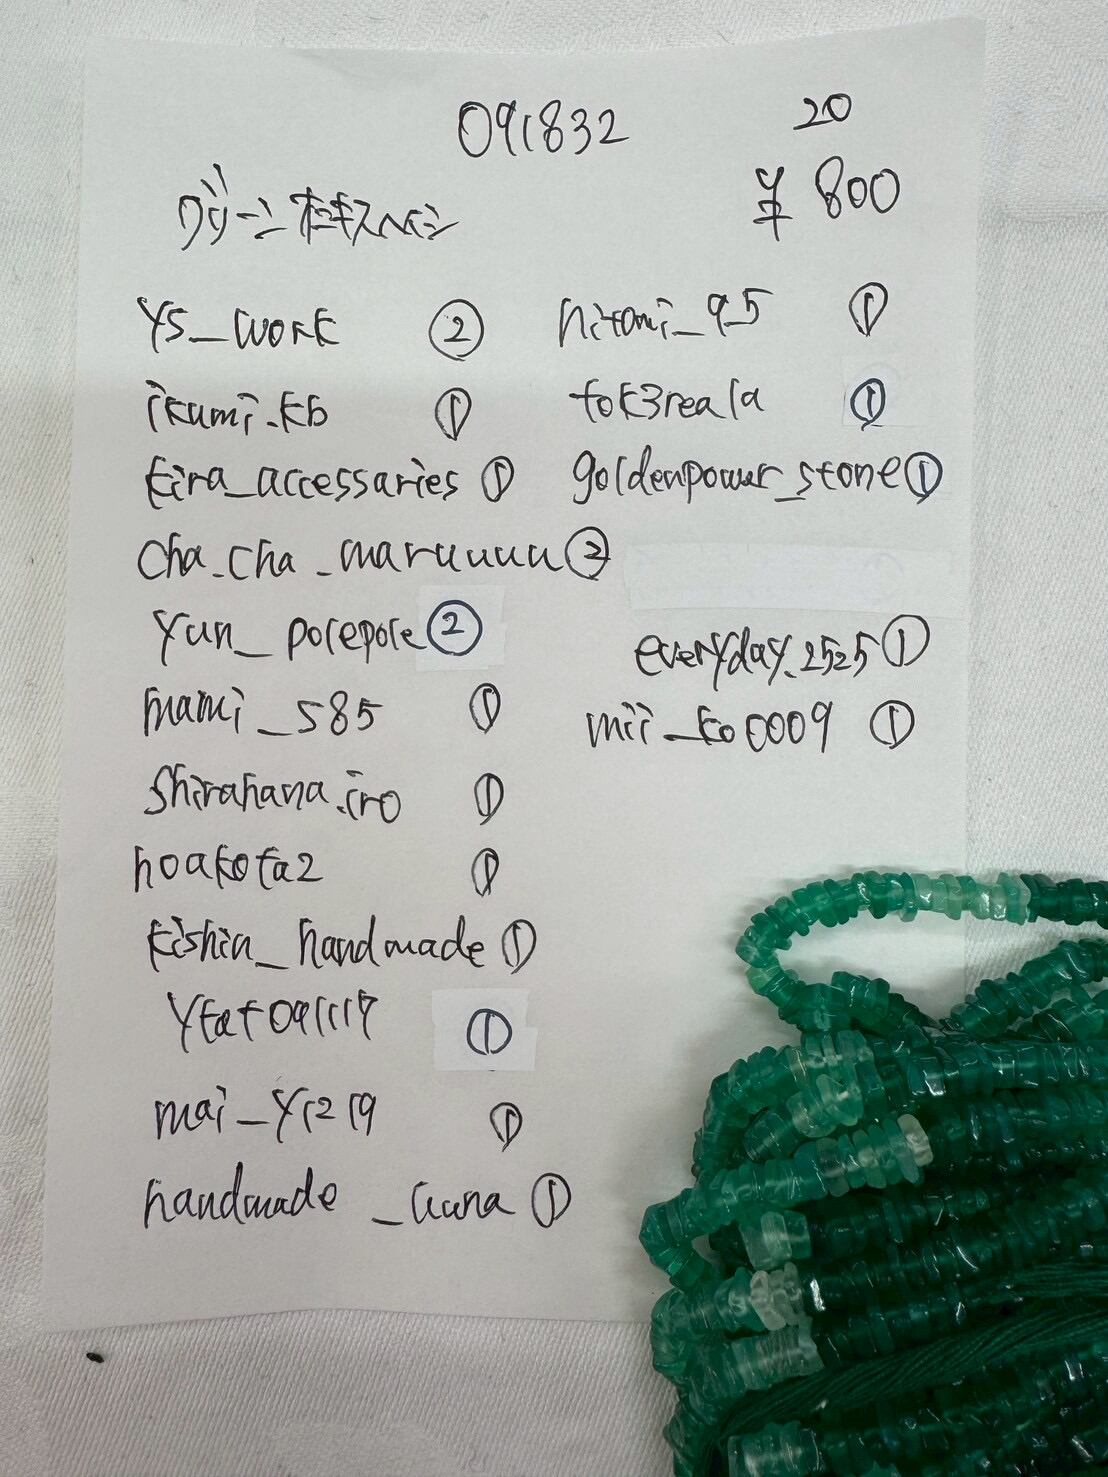 091832
20
¥ 800
グリーンオニキスヘイシ
YS_work ②
ikumi.kb ①
kira_accessaries ①
cha.cha_maruuuu ②
yun_polepole ②
mami_585 ①
shirahana.iro ①
hoakota2 ①
kishin_handmade ①
①
mai_y1219 ①
handmade_ ①
hitomi_95 ①
tok3reala ①
goldenpower_stone ①
everyday.2525 ①
mii_ko0009 ①